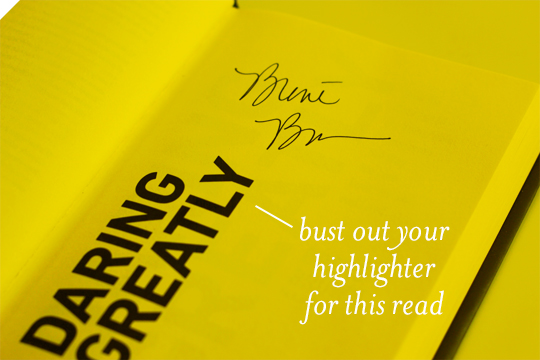 Brené
DARING
GREATLY
bust out your
highlighter
for this read